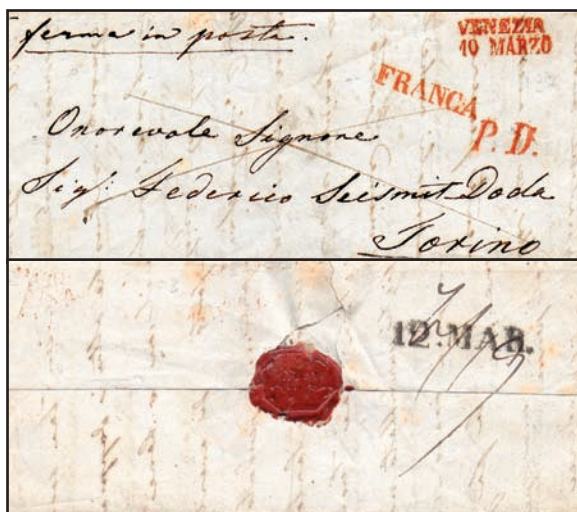 ferma in posta.
VENEZIA
10 MARZO
FRANCA
P. D.
Onorevole Signore
Sigr. Federico Seismit Doda
Torino
12. MAR.